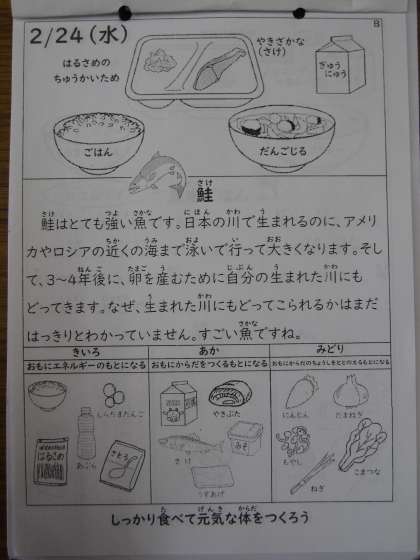 B
2/24(水)
はるさめの
ちゅうかいため
やきざかな
(さけ)
ぎゅう
にゅう
ごはん
だんごじる
さけ
鮭
さけ つよ さかな にほん かわ う
鮭はとても強い魚です。日本の川で生まれるのに、アメリ
ちか うみ およ い おお
カやロシアの近くの海まで泳いで行って大きくなります。そし
ねんご たまご う じぶん う かわ
て、3~4年後に、卵を産むために自分の生まれた川にも
う かわ
どってきます。なぜ、生まれた川にもどってこられるかはまだ
さかな
はっきりとわかっていません。すごい魚ですね。
きいろ あか みどり
おもにエネルギーのもとになる おもにからだをつくるもとになる おもにからだのちょうしをととのえるもとになる
しらたまだんご
あぶら
はるさめ
さとう
やきぶた
さけ
みそ
うすあげ
にんじん
たまねぎ
もやし
ねぎ
こまつな
た げんき からだ
しっかり食べて元気な体をつくろう